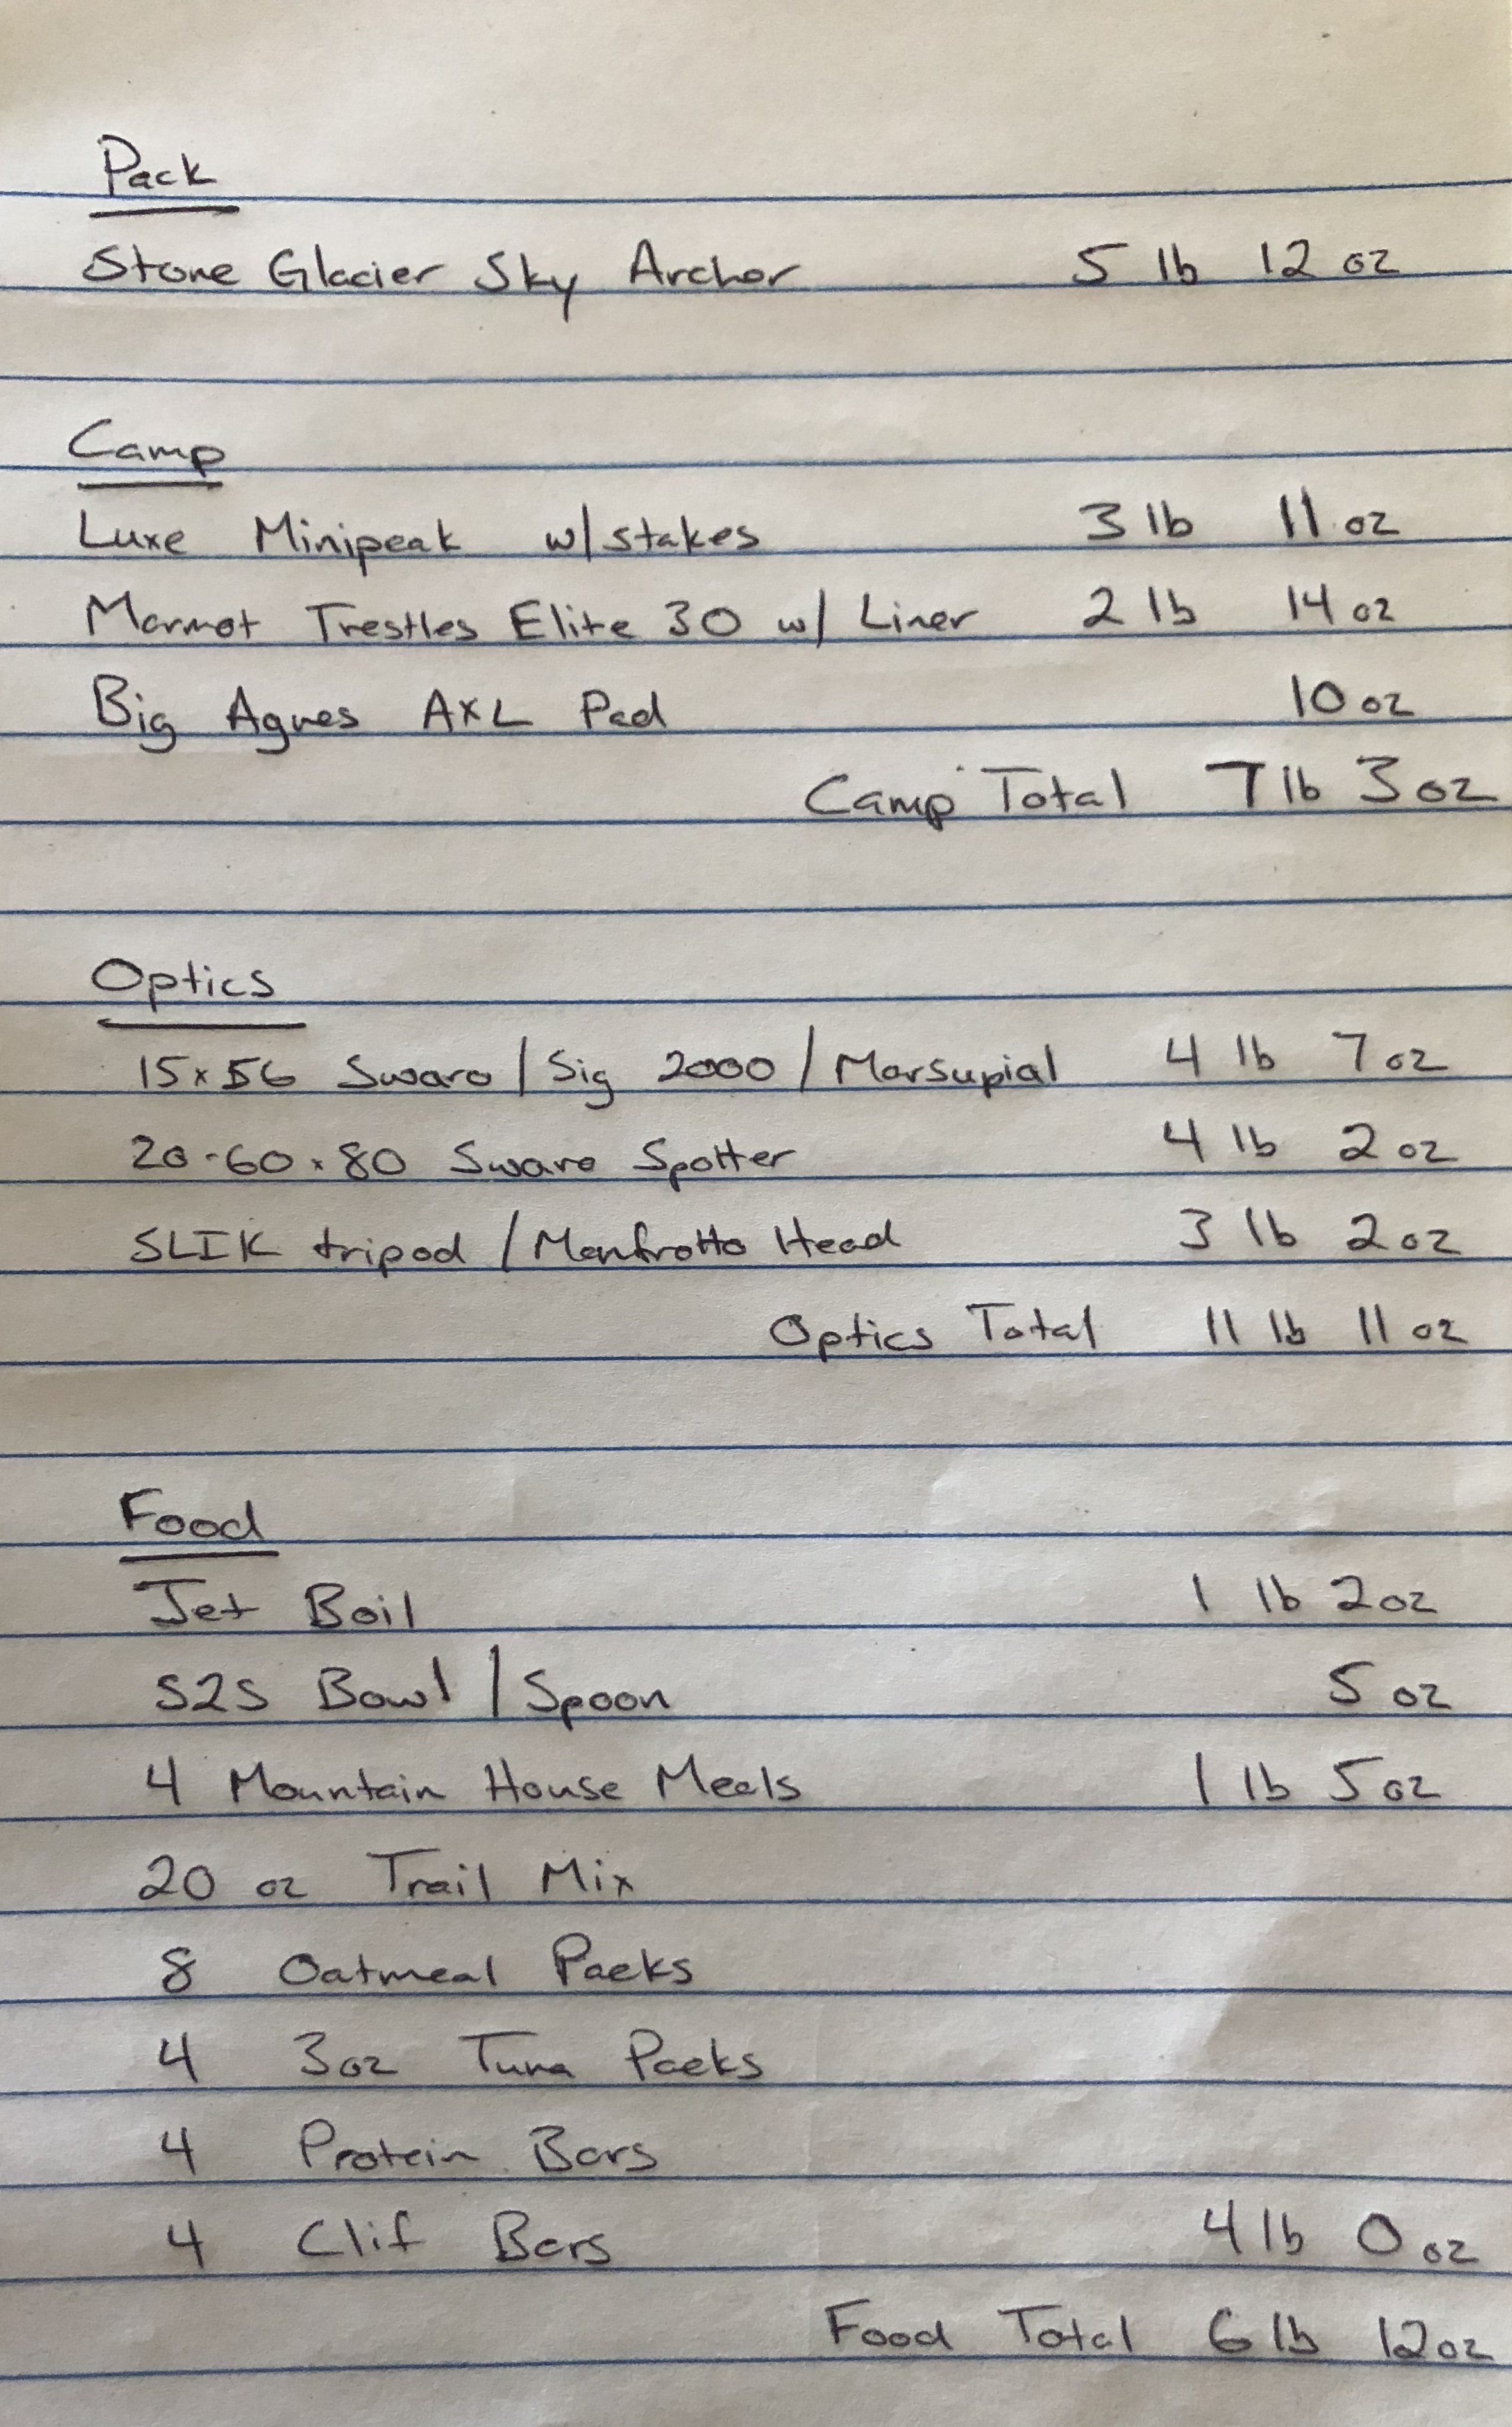 Pack
Stone Glacier Sky Archer 5 lb 12 oz
Camp
Luxe Minipeak w/stakes 3 lb 11 oz
Marmot Trestles Elite 30 w/ Liner 2 lb 14 oz
Big Agnes AXL Pad 10 oz
Camp Total 7 lb 3 oz
Optics
15x56 Swaro / Sig 2000 / Marsupial 4 lb 7 oz
20-60x80 Swaro Spotter 4 lb 2 oz
SLIK tripod / Manfrotto Head 3 lb 2 oz
Optics Total 11 lb 11 oz
Food
Jet Boil 1 lb 2 oz
S2S Bowl / Spoon 5 oz
4 Mountain House Meals 1 lb 5 oz
20 oz Trail Mix
8 Oatmeal Packs
4 3oz Tuna Packs
4 Protein Bars
4 Clif Bars 4 lb 0 oz
Food Total 6 lb 12 oz